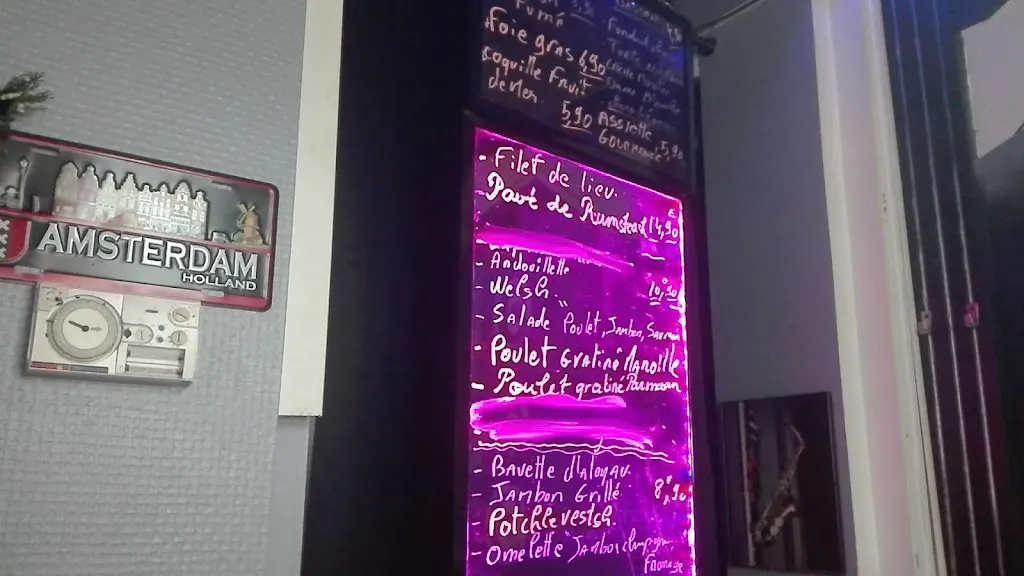 AMSTERDAM
HOLLAND
Fumé
Foie gras 6,90
coquille Fruit
de Mer. 5,90
Assiette
Gourmande 5,90
- Filet de lieu.
- Pavé de Rumsteack 14,90
- Andouillette
- Welsh 10,90
- Salade Poulet, Jambon, Saumon
- Poulet gratiné Maroille
- Poulet gratiné Parmesan
- Bavette d'aloyau.
- Jambon Grillé 8,90
- Potchlevestch.
- Omelette Jambon champign
Fromage